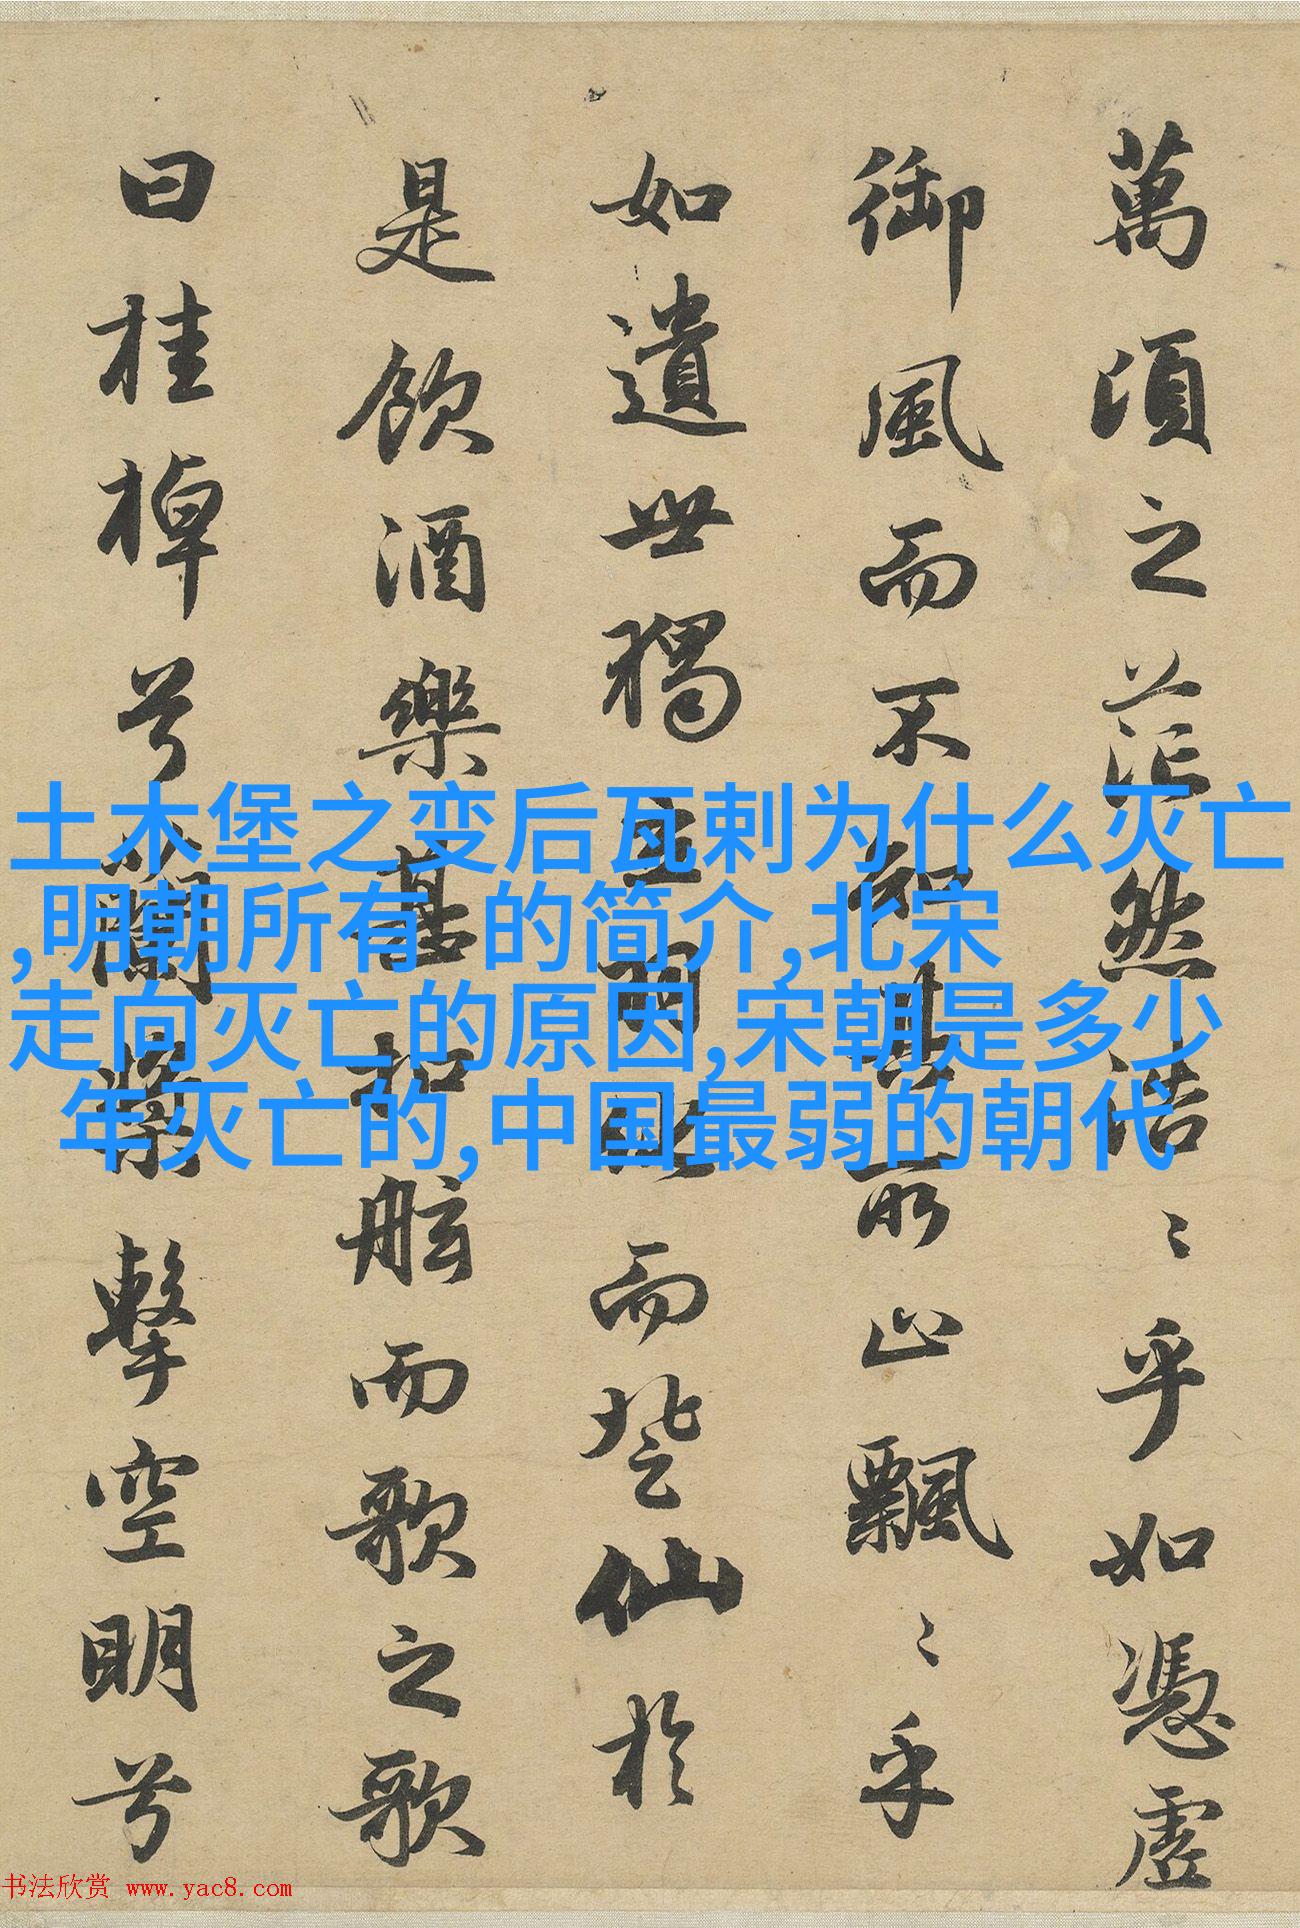 萬頃之茫然浩〻乎如馮虛
御風而不知其所止飄〻乎
如遺世獨立羽化而登仙於
是飲酒樂甚扣舷而歌之歌
曰桂棹兮蘭槳擊空明兮
土木堡之变后瓦剌为什么灭亡
,明朝所有 的简介,北宋
走向灭亡的原因,宋朝是多少
年灭亡的,中国最弱的朝代
书法欣赏 www.yac8.com